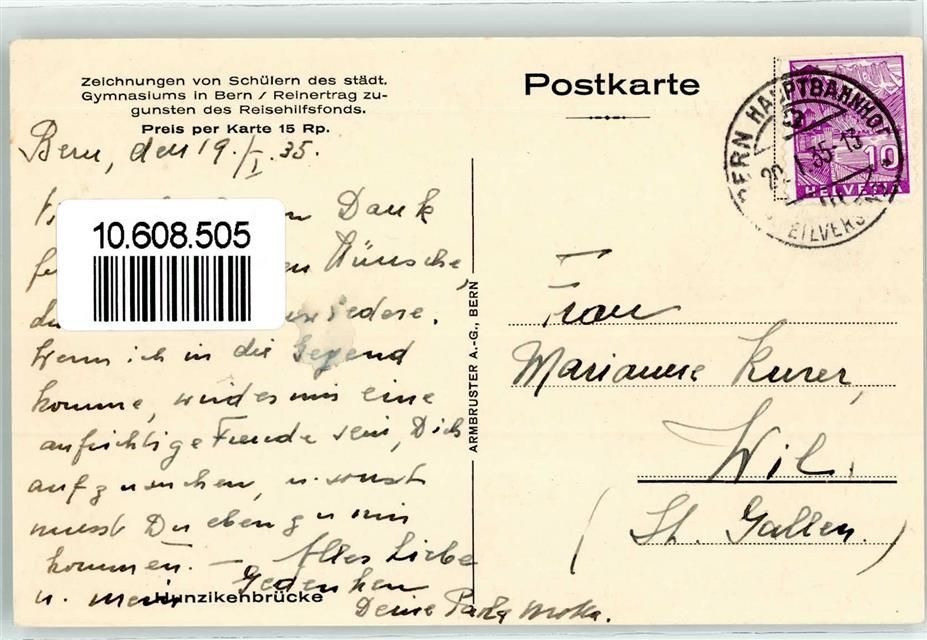 Zeichnungen von Schülern des städt.
Gymnasiums in Bern / Reinertrag zu-
gunsten des Reisehilfsfonds.
Preis per Karte 15 Rp.
Bern, den 19./I.35.
Dank
Wünsche,
10.608.505
Wenn ich in die Gegend
komme, wird es mir eine
aufrichtige Freude sein, Dich
aufzusuchen, u. sonst
musst Du eben zu mir
kommen. — Alles Liebe
u. mein Gedenken
Hunzikenbrücke
Deine
ARMBRUSTER A.-G., BERN
Postkarte
BERN HAUPTBAHNHOF
20.I.35-13
EILVERS
10
HELVETIA
Frau
Marianne Kurer,
Wil.
(St. Gallen.)